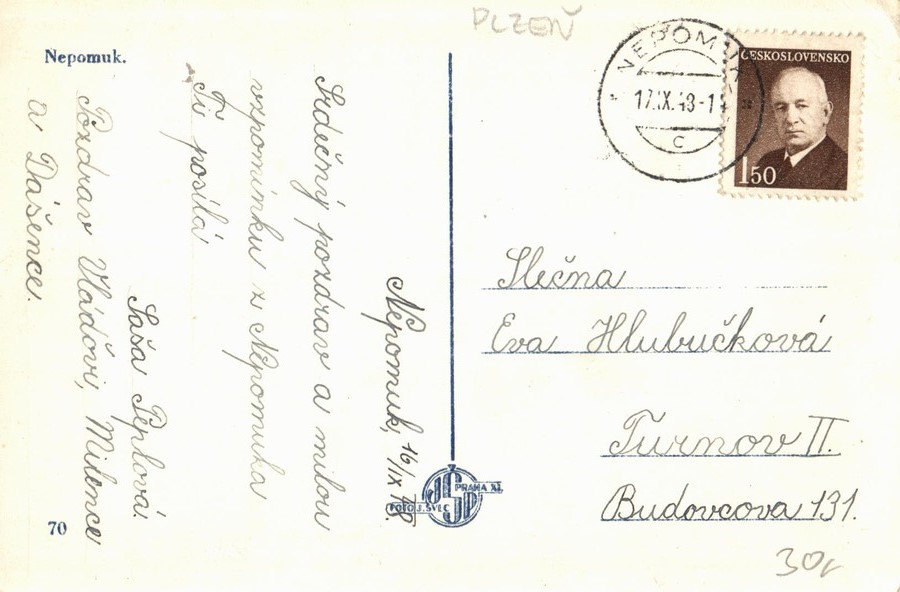 PLZEŇ
Nepomuk.
NEPOMUK
17.IX.48-1
C
ČESKOSLOVENSKO
1 50
Nepomuk, 16/IX 48.
Srdečný pozdrav a milou
vzpomínku z Nepomuka
Ti posílá
Saša Peplová.
Pozdrav Vláďovi, Milence
a Dášence.
Slečna
Eva Hlubučková
Turnov II.
Budovcova 131.
JŠP
PRAHA XI.
FOTO J. ŠVEC
70
30,